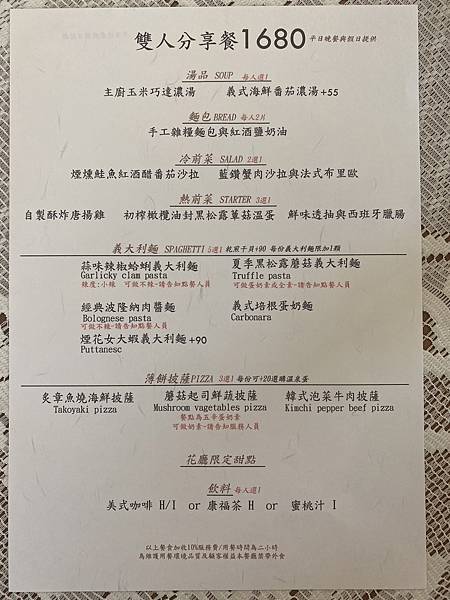 雙人分享餐1680 平日晚餐與假日提供
湯品 SOUP 每人選1
主廚玉米巧達濃湯 義式海鮮番茄濃湯+55
麵包 BREAD 每人2片
手工雜糧麵包與紅酒鹽奶油
冷前菜 SALAD 2選1
煙燻鮭魚紅酒醋番茄沙拉 藍鑽蟹肉沙拉與法式布里歐
熱前菜 STARTER 3選1
自製酥炸唐揚雞 初榨橄欖油封黑松露蕈菇溫蛋 鮮味透抽與西班牙臘腸
義大利麵 SPAGHETTI 5選1 乾煎干貝+90 每份義大利麵限加1顆
蒜味辣椒蛤蜊義大利麵 夏季黑松露蘑菇義大利麵
Garlicky clam pasta Truffle pasta
辣度:小辣 可做不辣-請告知點餐人員 可做蛋奶素或全素-請告知點餐人員
經典波隆納肉醬麵 義式培根蛋奶麵
Bolognese pasta Carbonara
可做不辣-請告知點餐人員
煙花女大蝦義大利麵+90
Puttanesc
薄餅披薩PIZZA 3選1 每份可+20選購溫泉蛋
炙章魚燒海鮮披薩 蘑菇起司鮮蔬披薩 韓式泡菜牛肉披薩
Takoyaki pizza Mushroom vagetables pizza Kimchi pepper beef pizza
餐點為五辛蛋奶素
可做奶素-請告知服務人員
花廳限定甜點
飲料 每人選1
美式咖啡 H/I or 康福茶 H or 蜜桃汁 I
以上餐食加收10%服務費/用餐時間為二小時
為維護用餐環境品質及顧客權益本餐廳禁帶外食